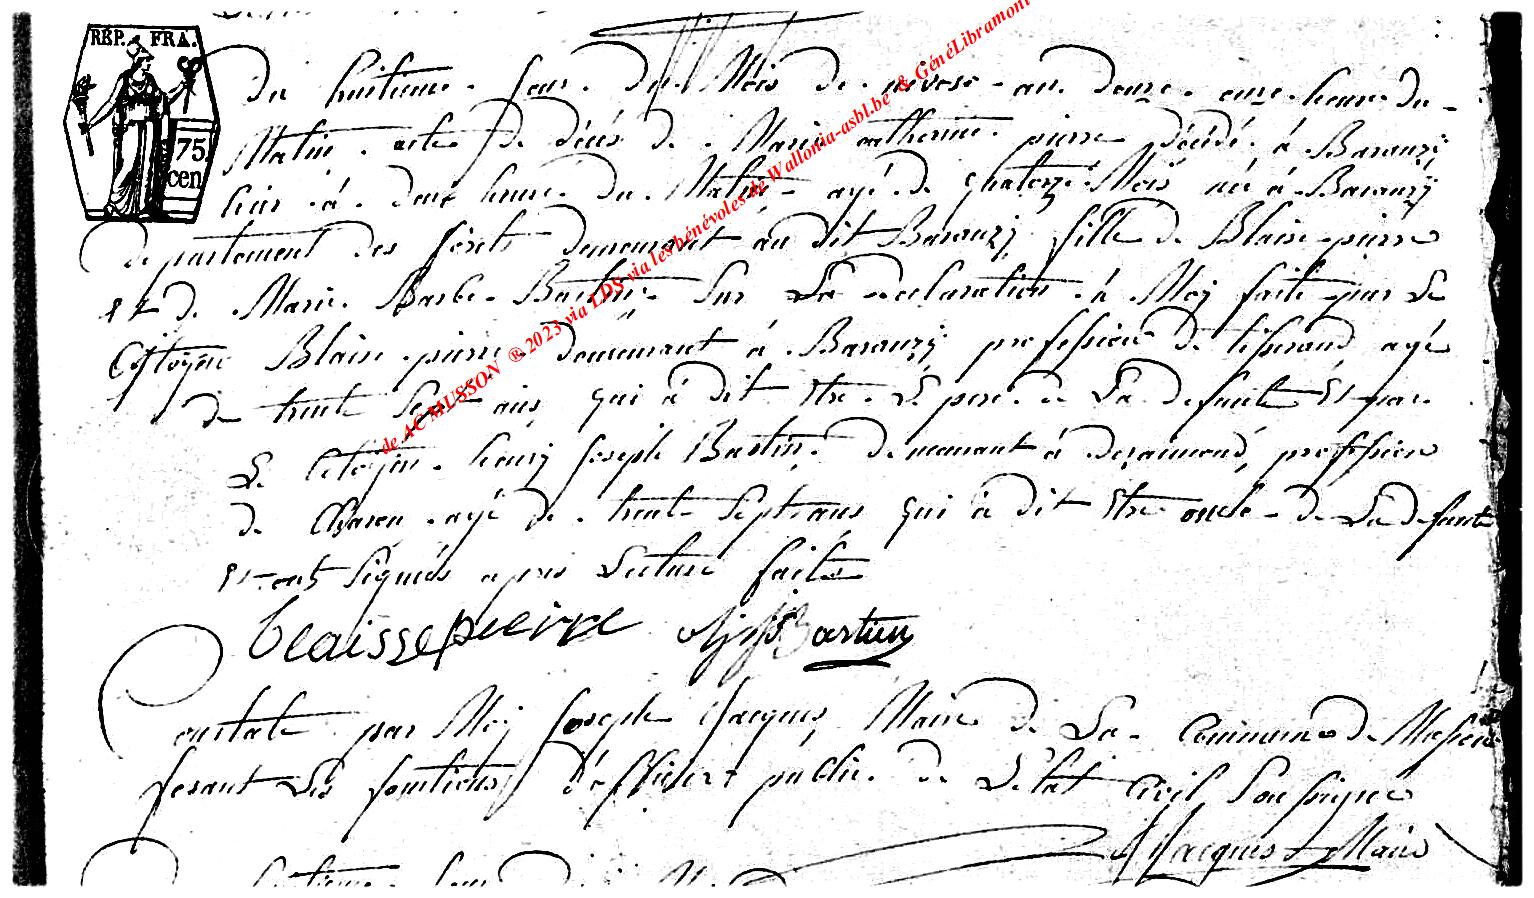 RÉP. FRA.
75
cen
Du huitieme jour du Mois de nivose an douze onze heure du
Matin acte de décés de Marie catherine pierre décédé à Baranzÿ
hier à douse heure du Matin agé de quatorze Mois né à Baranzÿ
departement des forêts demeurant au dit Baranzÿ fille de Blaise pierre
et de Marie Barbe Bastin Sur La declaration à Moÿ faite par Le
Citoyen Blaise pierre demeurant à Baranzÿ profession de tisserand agé
de trente Sept ans qui à dit Etre Le pere de La defunte Et par
Le Citoyen henrÿ joseph Bastin demeurant à profession
de Charon agé de trente Sept ans qui à dit Etre oncle de La defunte
Et ont Signés apres Lecture faite
blaisse pierre Bastin
Constaté par Moÿ joseph jacques Maire de La Commune de
fesant Les fonctions d'officier public de L'état Civil Soussigné
Jacques Maire
de AC MUSSON ® 2023 via LDS via les bénévoles de Wallonia-asbl.be & GénéLibramont